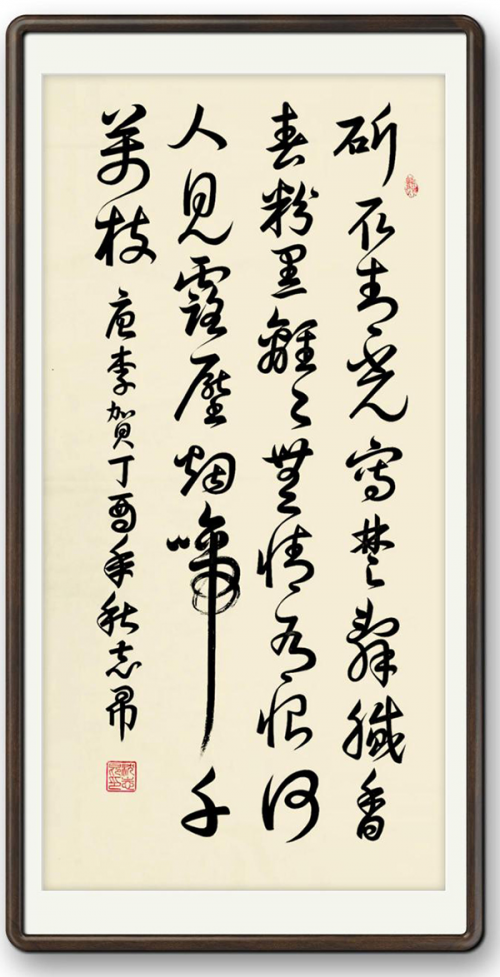 斫取青光寫楚辭膩香
春粉黑離々無情有恨何
人見露壓烟啼千
萬枝 唐李賀丁酉年秋志昂